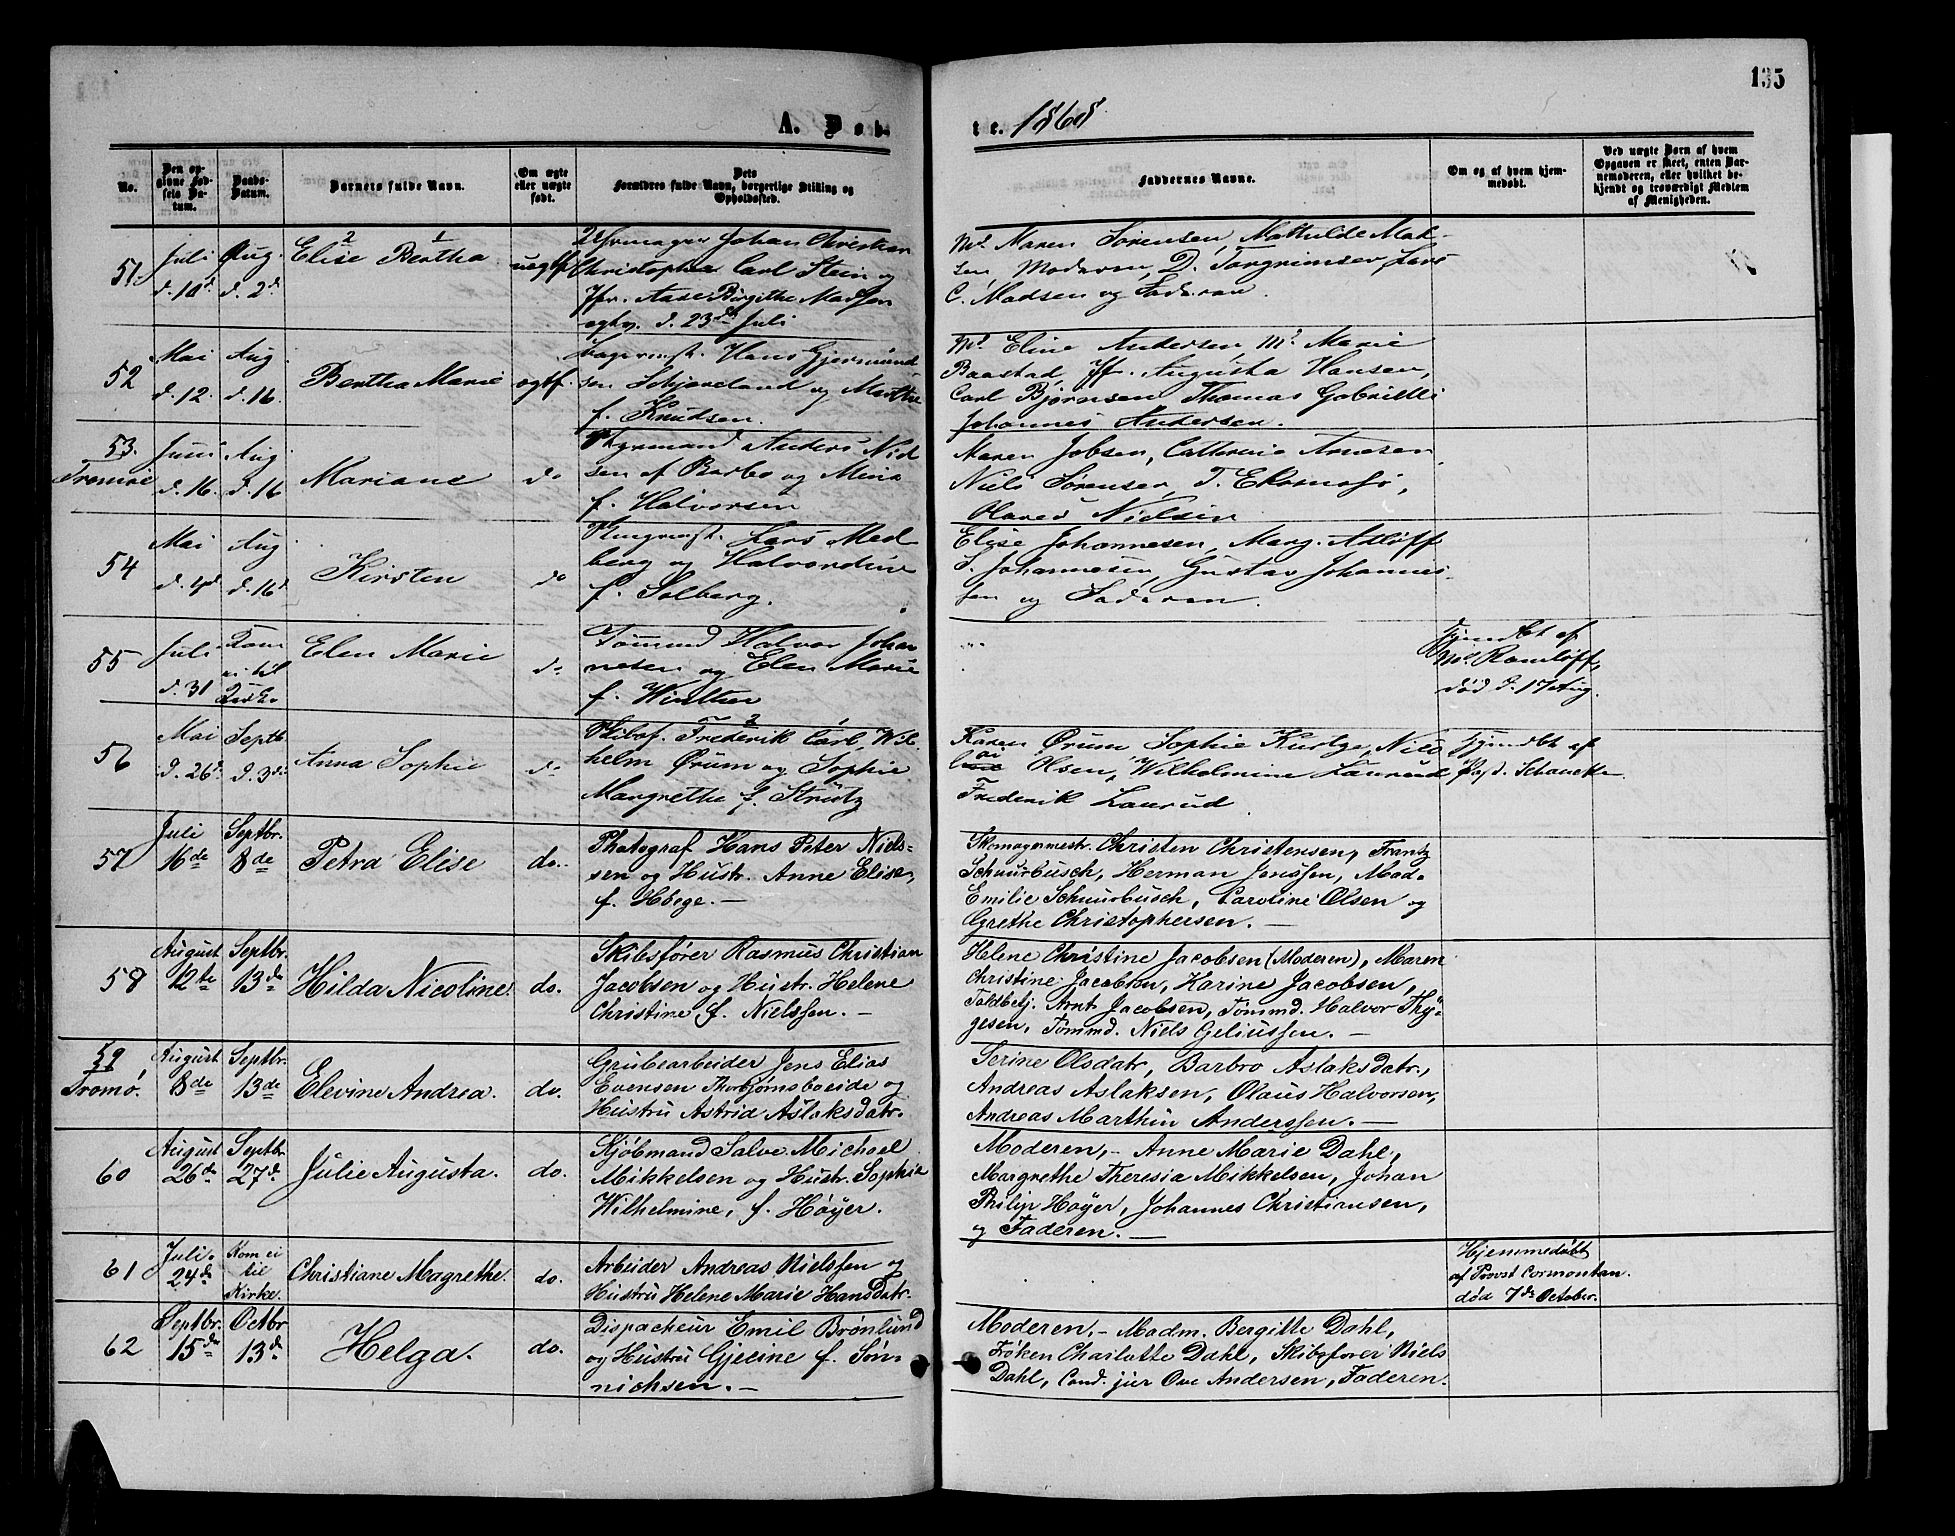 135
A. Døbte. 1868
No.
Den opgivne Fødsels Datum.
Daabs-Datum.
Barnets fulde Navn.
Om ægte eller uægte født.
Dets Forældres fulde Navn, borgerlige Stilling og Opholdssted.
Faddernes Navne.
Om og af hvem hjemmedøbt.
Ved uægte Børn af hvem Opgaven er skeet, enten Barnemoderen, eller hvilket bekjendt og troværdigt Medlem af Menigheden.
51.
Juli
d. 10d
Aug.
d. 2d
2 1
Elise Bertha
uægtf
Uhrmager Johan Christian
Christopher Carl Stein og
Jfr. Aase Birgithe Madsen
egtv. d. 23de Juli
Md. Maren Sørensen, Mathilde Mad-
sen, Moderen, D. Torgrimsen, Lars
C. Madsen og Faderen.
52
Mai
d. 12.
Aug.
d. 16.
Bertha Marie
egtf.
Bagermst. Hans Gjermund
sen Schjæveland og Marthe
f. Knudsen.
Md. Eline Andersen, Md. Marie
Baastad, Jfr. Augusta Hansen,
Carl Bjørnsen, Thomas Gabrielle
Johannes Andersen.
53.
Tromøe
Juni
d. 16.
Aug.
d. 16
Mariane
do
Styrmand Anders Niel
sen af Barbo og Mina
f. Halvorsen
Maren Jobsen, Cathrine Arnesen
Niels Sørensen, T.
Nielsen
54
Mai
d. 4d
Aug
d. 16d
Kirsten
do
Lars Med
berg og Halvordine
f. Solberg.
Elise Johannesen, Marg. Adløff
S. Johannesen, Gustav Johannes-
sen og Faderen.
55
Juli
d. 31
Kom
ei til
Kirke
Elen Marie
do
Tømmd Halvor Johan
nesen og Elen Marie
f. Winther
Hjemdbt af
Md. Ramløff,
død d. 17 Aug.
56
Mai
d. 26d
Septb
d. 3de
Anna Sophie
do
2 1
Skibsf. Frederik Carl Wil
helm Ørum og Sophie
Margrethe f. Strütz
Karen Ørum, Sophie Kurtze, Nico
lai Olsen, Wilhelmine Laurud
Frederik Laurud
Hjemdbt af
Schanche.
57
Juli
16de
Septbr.
8de
Petra Elise
do.
Photograf Hans Peter Niels-
sen og Hustr. Anne Elise,
f. Hbege.—
Skomagermestr. Christen Christensen, Frantz
Schnurbusch, Herman Janssen, Mad.
Emilie Schnurbusch, Caroline Olsen og
Grethe Christophersen.—
58
August
12te
Septbr.
13de
Hilda Nicoline.
do.
Skibsfører Rasmus Christian
Jacobsen og Hustr. Helene
Christine, f. Nielssen.—
Helene Christine Jacobsen (Moderen), Maren
Christine Jacobsen, Karine Jacobsen,
Toldbetj. Arnt Jacobsen, Tømmd. Halvor Thy-
gesen, Tømmd. Niels Geliussen.—
59
Tromø.
August
8de
Septbr.
13de
Elevine Andrea.
do.
Grubearbeider Jens Elias
Evensen Thorbjørnsboeide og
Hustru Astrid Aslaksdatr.
Serine Olsdatr, Barbro Aslaksdatr.,
Andreas Aslaksen, Olaus Halvorsen,
Andreas Marthin Anderssen.—
60
August
26de
Septbr
27de
Julie Augusta.
do.
Kjøbmand Salve Michael
Mikkelsen og Hustr. Sophie
Wilhelmine, f. Høyer.
Moderen,- Anne Marie Dahl,
Margrethe Theresia Mikkelsen, Johan
Philip Høyer, Johannes Christiansen,
og Faderen.—
61
Juli.
24de
Kom ei
til
Kirke.
Christiane Magrethe.
do.
Arbeider Andreas Nielssen og
Hustru Helene Marie Hansdatr.
Hjemmedøbt
af Provst Cormontan.
død 7de October.
62
Septbr.
15de
Octbr
13de
Helga.
do.
Dispacheur Emil Brønlund
og Hustru Gjecine f. Søn-
nichsen.—
Moderen.- Madm. Bergitte Dahl,
Frøken Charlotte Dahl, Skibsfører Niels
Dahl, Cand. jur Ove Andersen, Faderen.